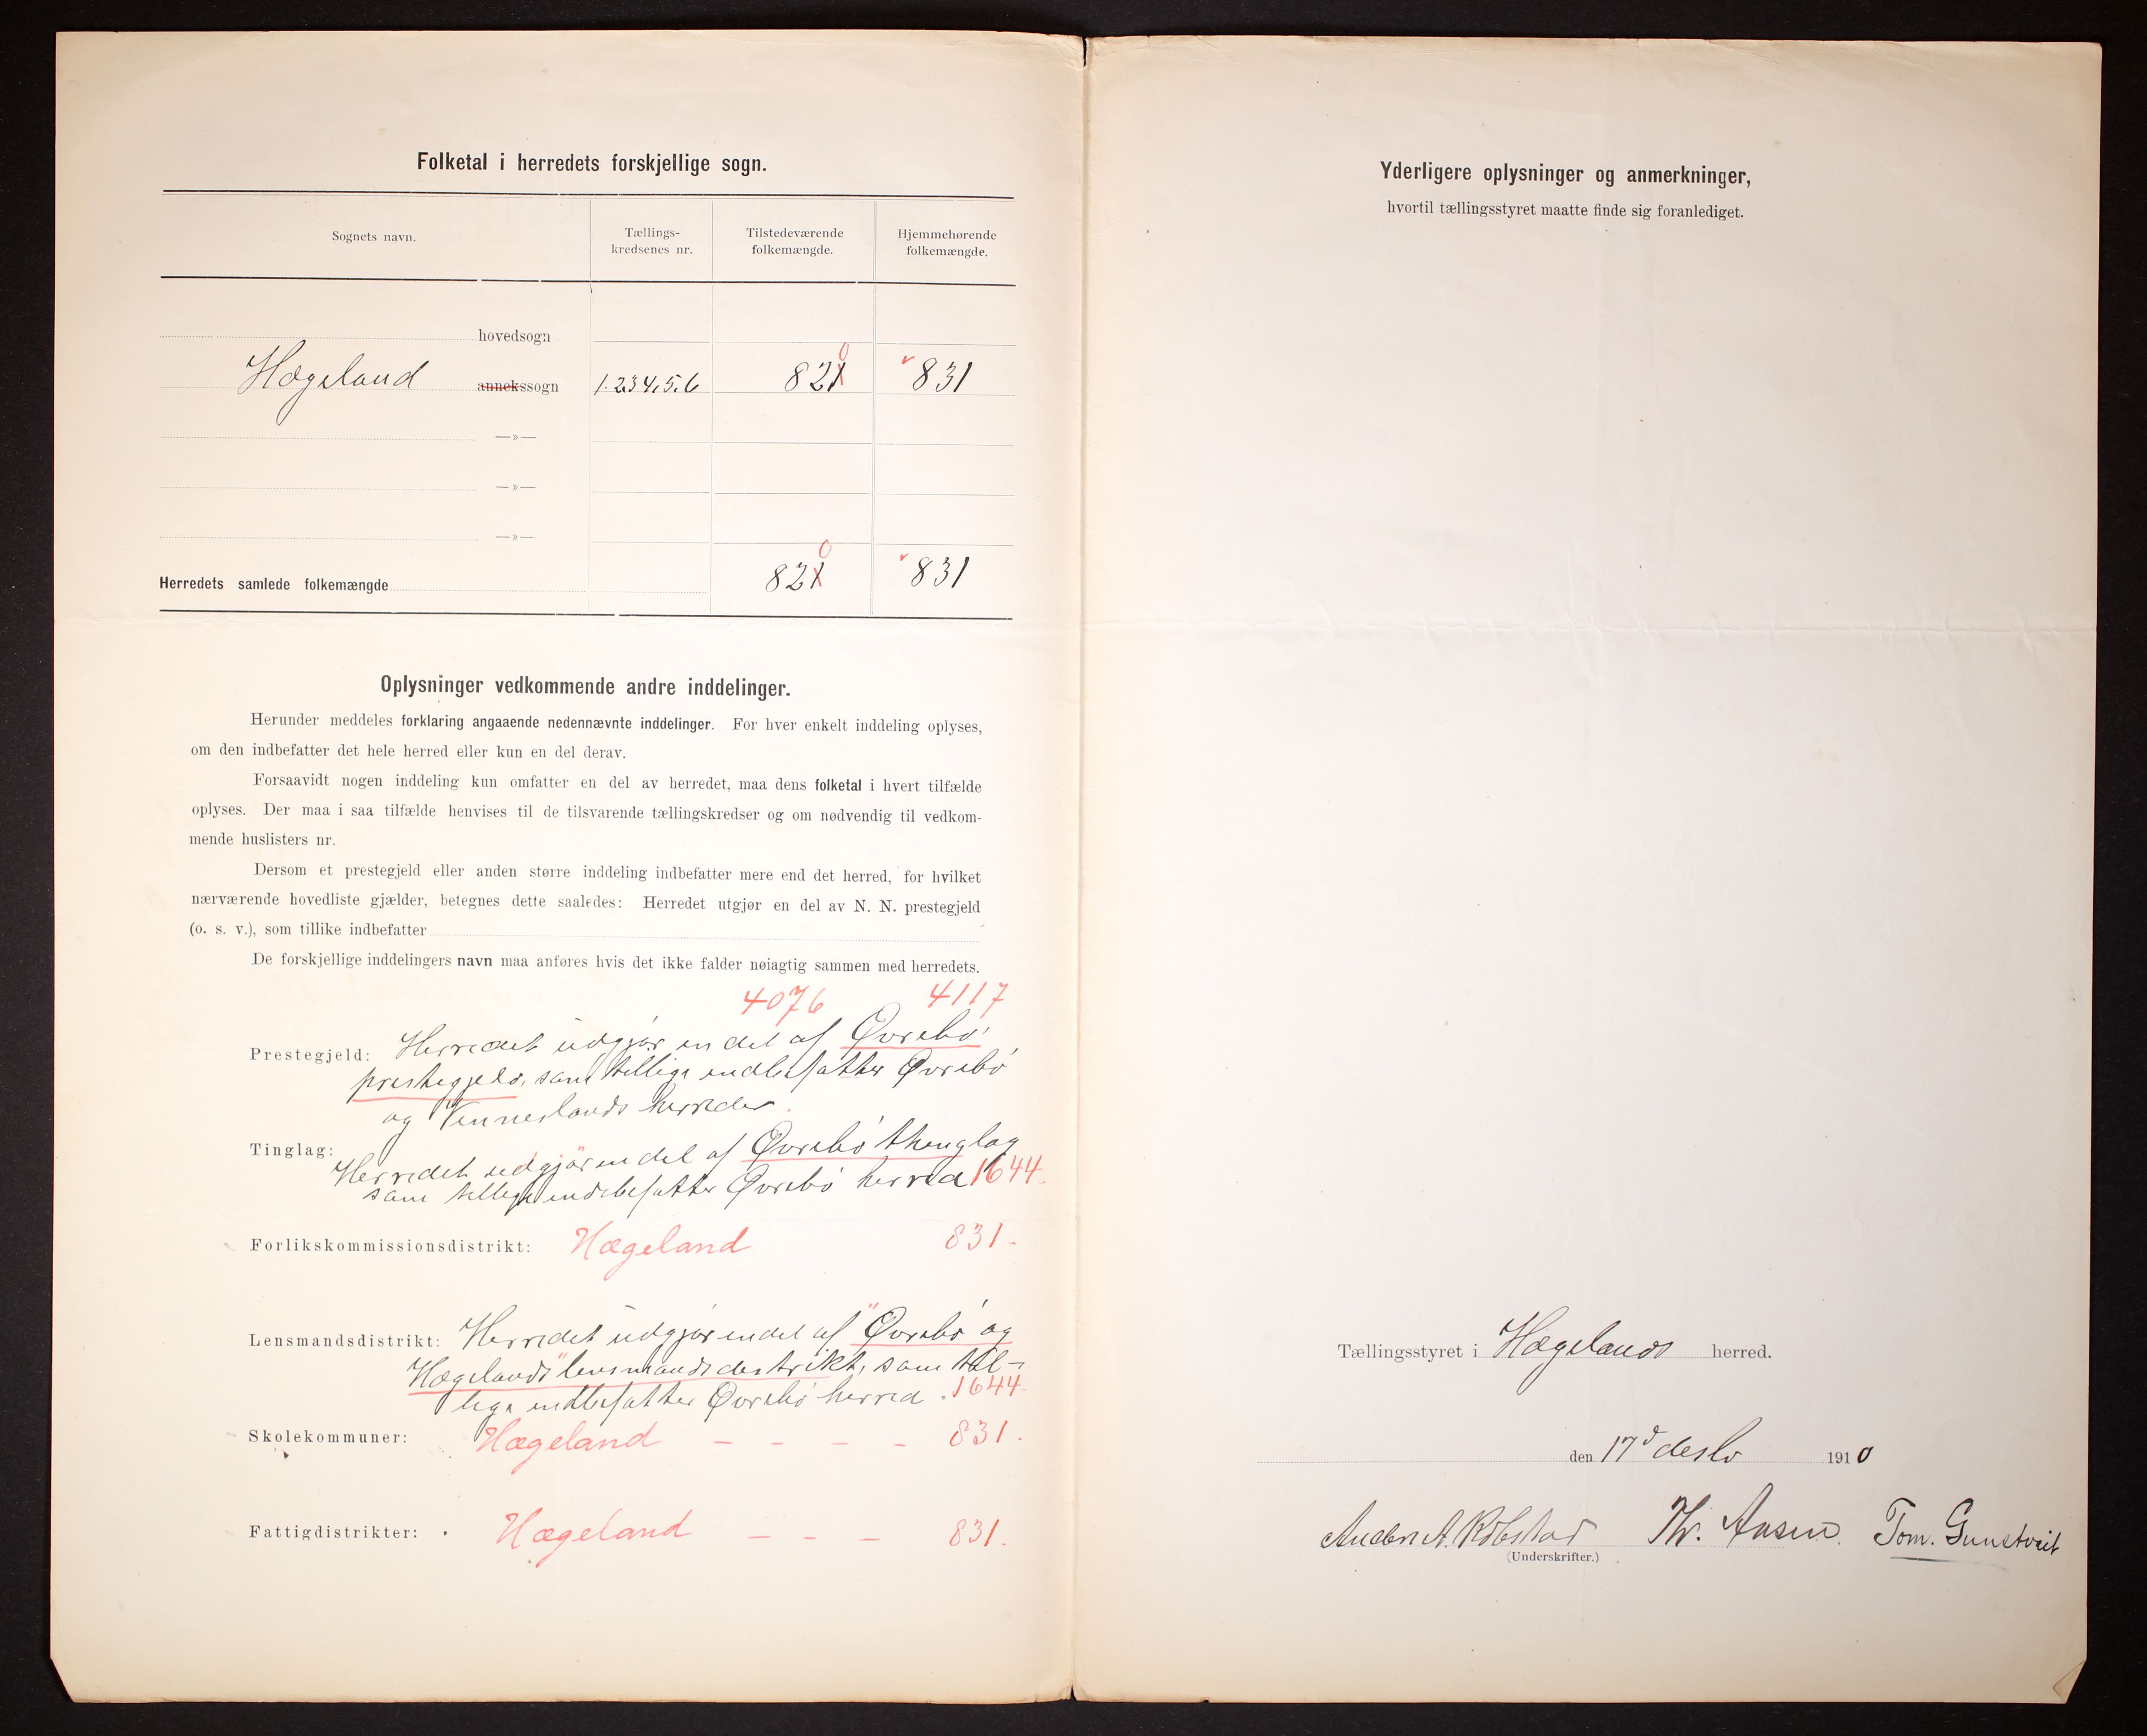 Folketal i herredets forskjellige sogn.
Sognets navn. Tællings-kredsenes nr. Tilstedeværende folkemængde. Hjemmehørende folkemængde.
hovedsogn
Hægeland annekssogn 1.2.3.4.5.6 821 0 831
—»—
—»—
—»—
Herredets samlede folkemængde 821 0 831
Oplysninger vedkommende andre inddelinger.
Herunder meddeles forklaring angaaende nedennævnte inddelinger. For hver enkelt inddeling oplyses,
om den indbefatter det hele herred eller kun en del derav.
Forsaavidt nogen inddeling kun omfatter en del av herredet, maa dens folketal i hvert tilfælde
oplyses. Der maa i saa tilfælde henvises til de tilsvarende tællingskredser og om nødvendig til vedkom-
mende huslisters nr.
Dersom et prestegjeld eller anden større inddeling indbefatter mere end det herred, for hvilket
nærværende hovedliste gjælder, betegnes dette saaledes: Herredet utgjør en del av N. N. prestegjeld
(o. s. v.), som tillike indbefatter
De forskjellige inddelingers navn maa anføres hvis det ikke falder nøiagtig sammen med herredets.
4076 4117
Prestegjeld: Herredet udgjør en del af Øvrebø
prestegjeld, som tillige indbefatter Øvrebø
og Vennesland herreder.
Tinglag: Herredet udgjør en del af Øvrebø thinglag
som tillige indbefatter Øvrebø herred 1644.
Forlikskommissionsdistrikt: Hægeland 831.
Lensmandsdistrikt: Herredet udgjør en del af "Øvrebø og
Hægelands" lensmandsdestrikt, som til-
lige indbefatter Øvrebø herred. 1644
Skolekommuner: Hægeland - - - - 831.
Fattigdistrikter: Hægeland - - - 831.
Yderligere oplysninger og anmerkninger,
hvortil tællingsstyret maatte finde sig foranlediget.
Tællingsstyret i Hægelands herred.
den 17d desbr 1910
Anders A. Robstad Th. Aasen. Tom. Gunstveit
(Underskrifter.)